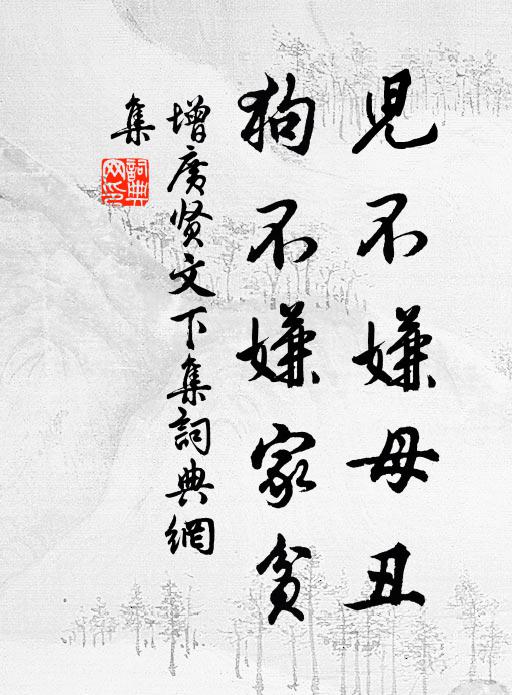 兒不嫌母丑
狗不嫌家貧
增廣贤文下集詞典網
集
詞典網